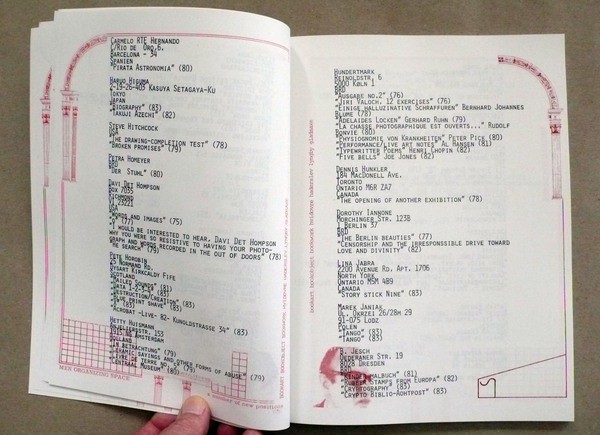 Carmelo RTE Hernando
C/Rio de Oro,6.
Barcelona - 34
Spanien
"Pirata Astronomia" (80)
Haruo Higuma
2-19-26-403 Kasuya Setagaya-Ku
Tokyo
Japan
"Biography" (83)
"Takuji Azechi" (82)
Steve Hitchcock
USA
"The drawing-completion test" (78)
"Broken promises" (79)
Petra Homeyer
BRD
"Der Stuhl" (80)
Davi Det Hompson
Box 7035
USA
"Words and images" (75)
(77)
"I would be interested to hear, Davi Det Hompson
why you were so resistive to having your photo-
graph and words recorded in the out of doors" (78)
"Research" (79)
Pete Horobin
25 Normand Rd.
Dysart Kirkcaldy Fife
Scotland
"Exiled Sounds" (81)
"Data 1-2-3-4" (83)
"Destruction/Creation" (83)
"Blue print shave" (83)
(83)
"Acrobat -Live- 82- Kunoldstrasse 34" (83)
Hetty Huismann
153
Amsterdam
Holland
"In Betrachtung" (79)
"Ceramic sayings and other forms of abuse" (79)
"Livre de terre No.
Museum" (80)
MEN ORGANIZING SPACE
a number of new positions
bookart bookobject bookwork
Hundertmark
Reinoldstr. 6
5000 Köln 1
BRD
"Ausgabe no.2" (76)
"Jiri Valoch, 12 exercises" (76)
"Einige halluzinative Schraffuren" Bernhard Johannes
Blume (78)
"Adelaides Locken" Gerhard Rühm (79)
"La chasse photographique est ouverts..." Rudolf
Bonvie (80)
"Physiognomie von Krankheiten" Peter Pick (80)
"Performance/Live art notes" Al Hansen (81)
"Typewritter Poems" Henri Chopin (82)
"Five bells" Joe Jones (82)
Dennis Hunkler
184 MacDonell Ave.
Toronto
Ontario M6R 2A7
Canada
"The opening of another exhibition" (78)
Dorothy Iannone
Morchinger Str. 123B
1 Berlin 37
BRD
"The Berlin beauties" (77)
"Censorship and the irresponssible drive toward
love and divinity" (82)
Lina Jabra
2200 Avenue Rd. Apt. 1706
North York
Ontario M5M 4B9
Canada
"Story stick Nine" (83)
Marek Janiak
Ul. Okrzei 26/28m 29
91-075 Lodz
Polen
"Tango" (83)
"Tango" (83)
B. Jesch
Oederaner Str. 19
8028 Dresden
DDR
"Kindermalbuch" (81)
"Rubber stamps from Europa" (82)
"Cryptiography" (83)
"Crypto Biblio-Aohtpost" (83)